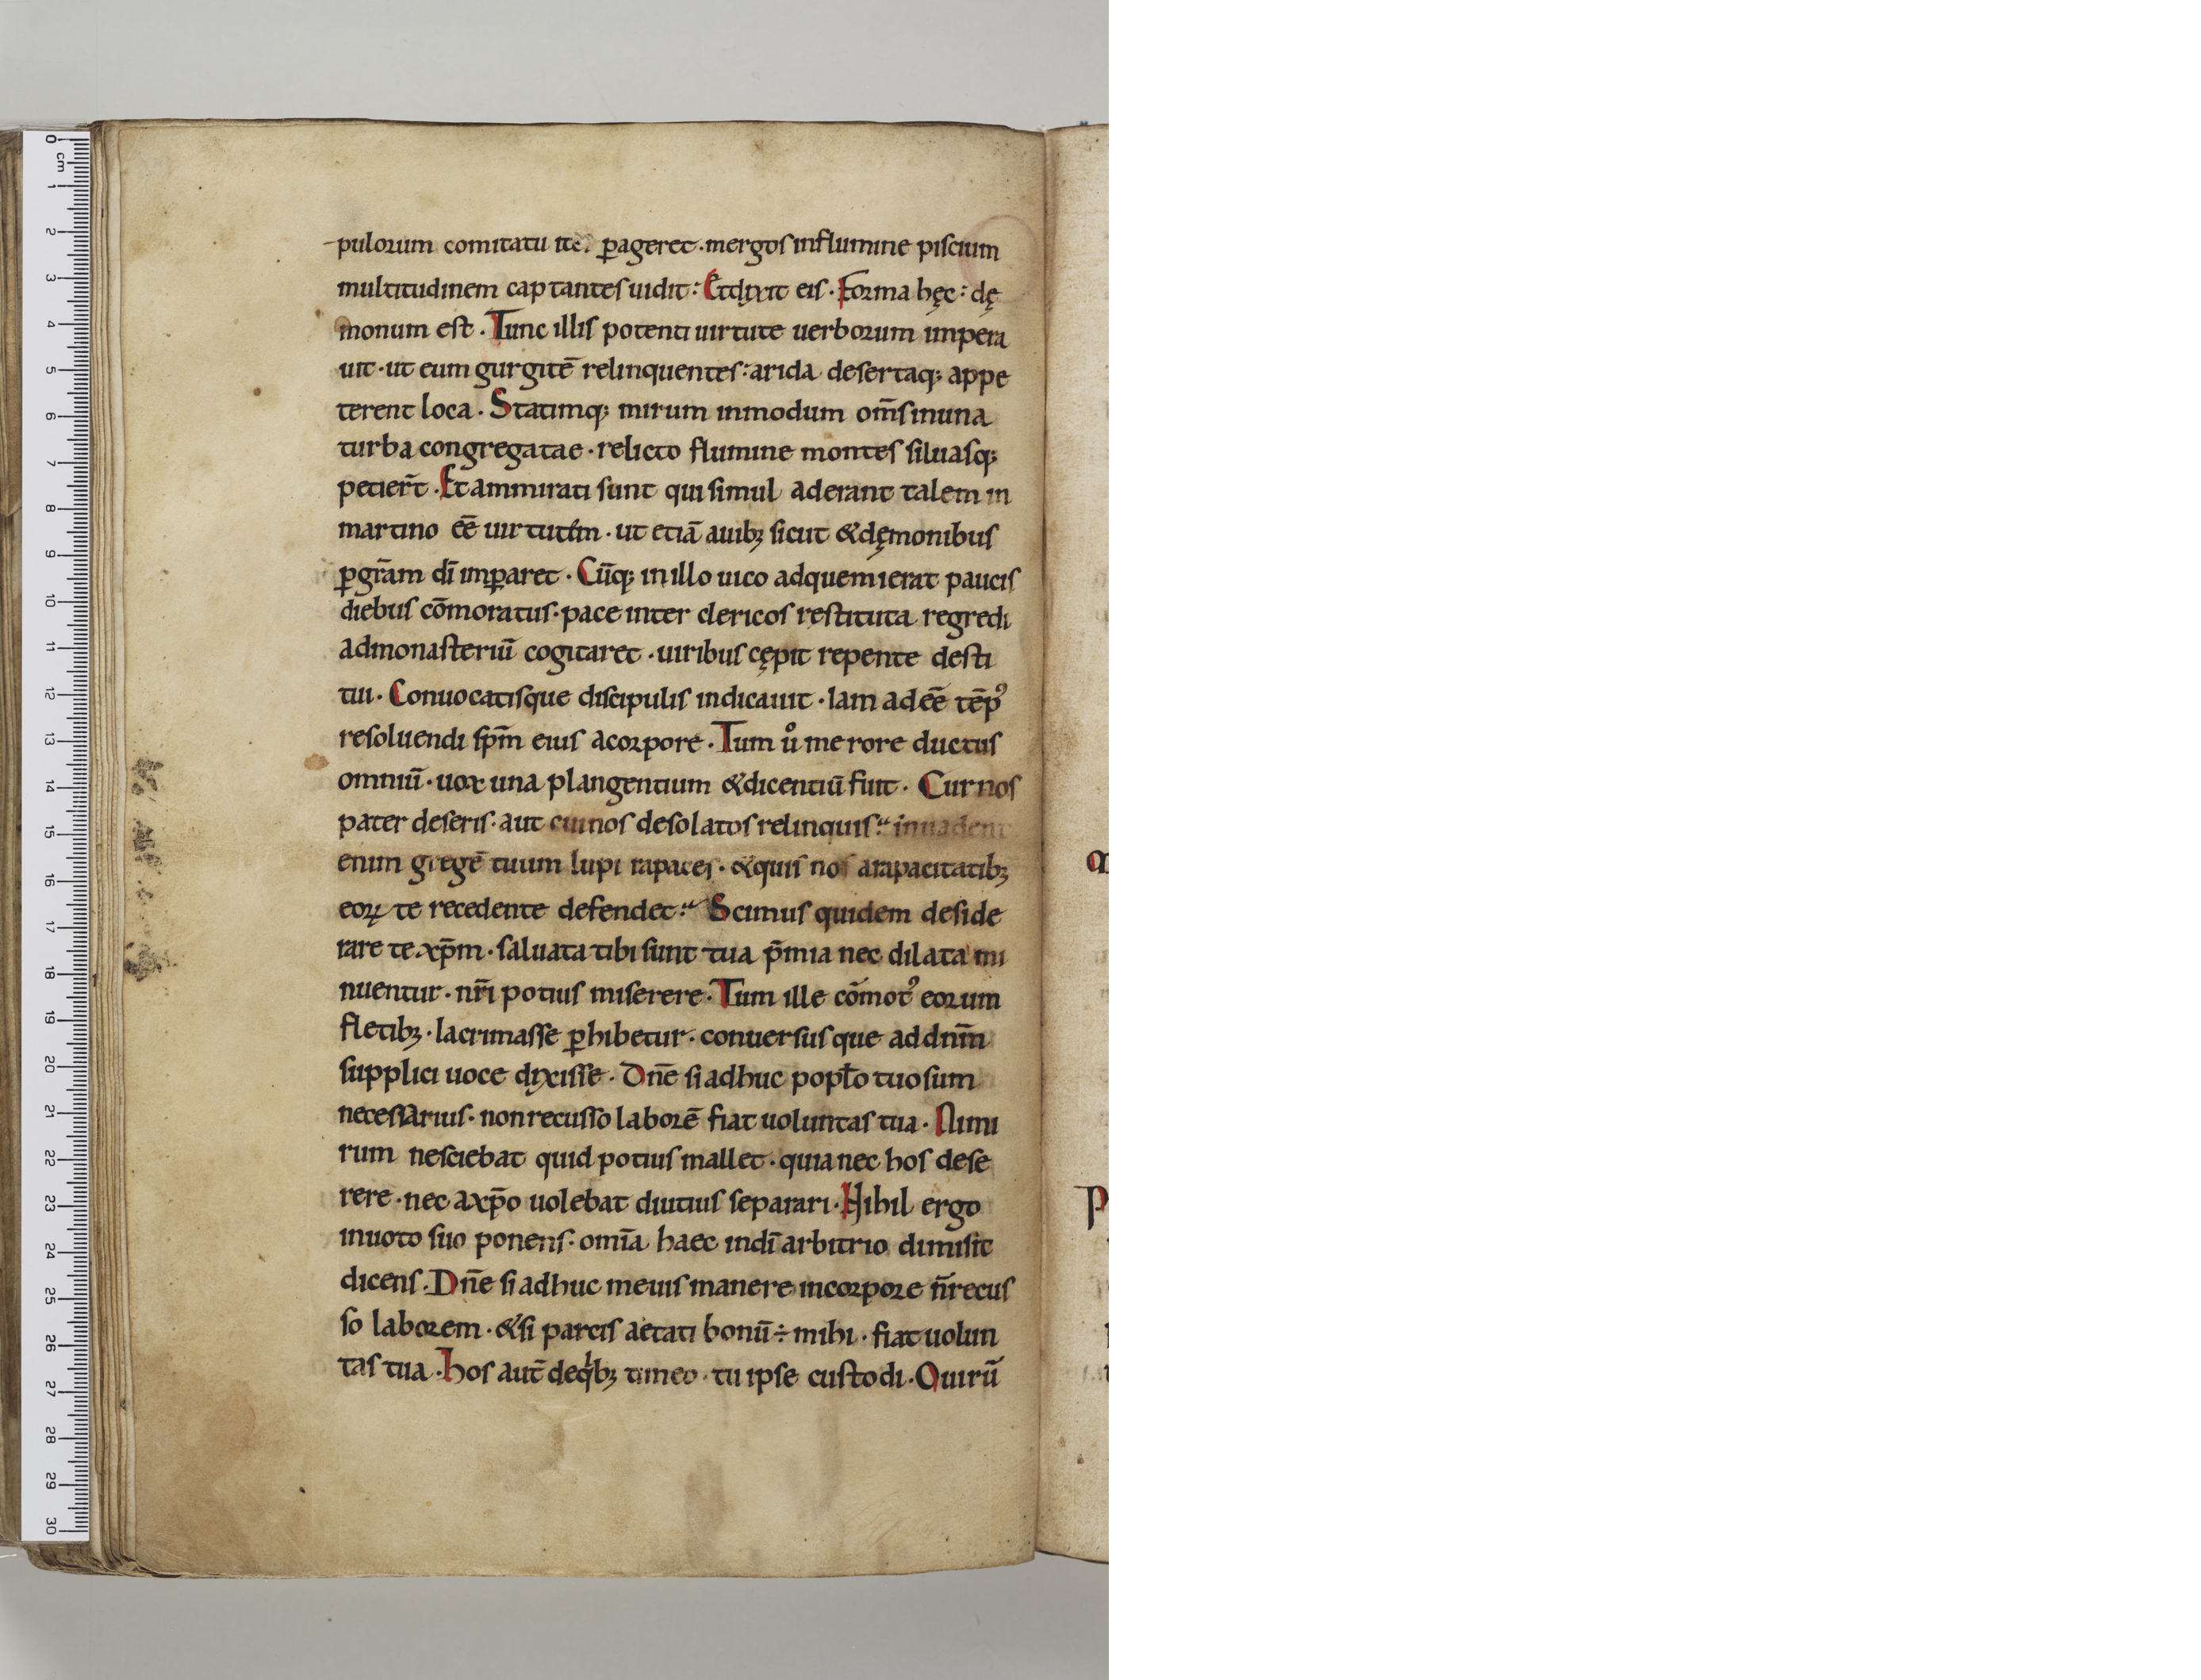 pulorum comitatu ite. ꝑageret · mergos influmine piscium
multitudinem captantes uidit : Et dixit eis · Forma hęc : dę
monum est . Tunc illis potenti uirtute uerborum impera
uit · ut eum gurgitē relinquentes : arida desertaq; appe
terent loca . Statimq; mirum inmodum om̄s inuna
turba congregatae · relicto flumine montes siluasq;
petier̄t . Et ammirati sunt qui simul aderant talem in
martino eē uirtutem · ut etiā auibꝫ sicut & dęmonibus
ꝑ gr̄am dī imꝑaret · Cūq; in illo uico adquem ierat paucis
diebus cōmoratus · pace inter clericos restituta regredi
admonasteriū cogitaret · uiribus cępit repente desti
tui . Conuocatisque discipulis indicauit · Iam adeē tēpꝰ
resoluendi sp̄m eius acorpore . Tum uͦ merore ductus
omniū · uox una plangentium & dicentiū fuit . Cur nos
pater deseris · aut cui nos desolatos relinquis : inuadent
enim gregē tuum lupi rapaces · & quis nos arapacitatibꝫ
eoꝝ te recedente defendet : Scimus quidem deside
rare te xp̄m · saluata tibi sunt tua p̄mia nec dilata mi
nuentur · nr̄i potius miserere . Tum ille cōmotꝰ eorum
fletibꝫ · lacrimasse ꝑhibetur · conuersusque addnm̄
supplici uoce dixisse . Dn̄e si adhuc popł̄o tuo sum
necessarius · non recusso laborē fiat uoluntas tua . Nimi
rum nesciebat quid potius mallet · quia nec hos dese
rere · nec axp̄o uolebat diutius separari . Nihil ergo
inuoto suo ponens · omīa haec indī arbitrio dimisit
dicens . Dn̄e si adhuc me uis manere incorpore n̄ recus
so laborem · & si parcis aetati bonū ÷ mihi · fiat uolun
tas tua . Hos aut̄ deqͥbꝫ timeo · tu ipse custodi . O uirū